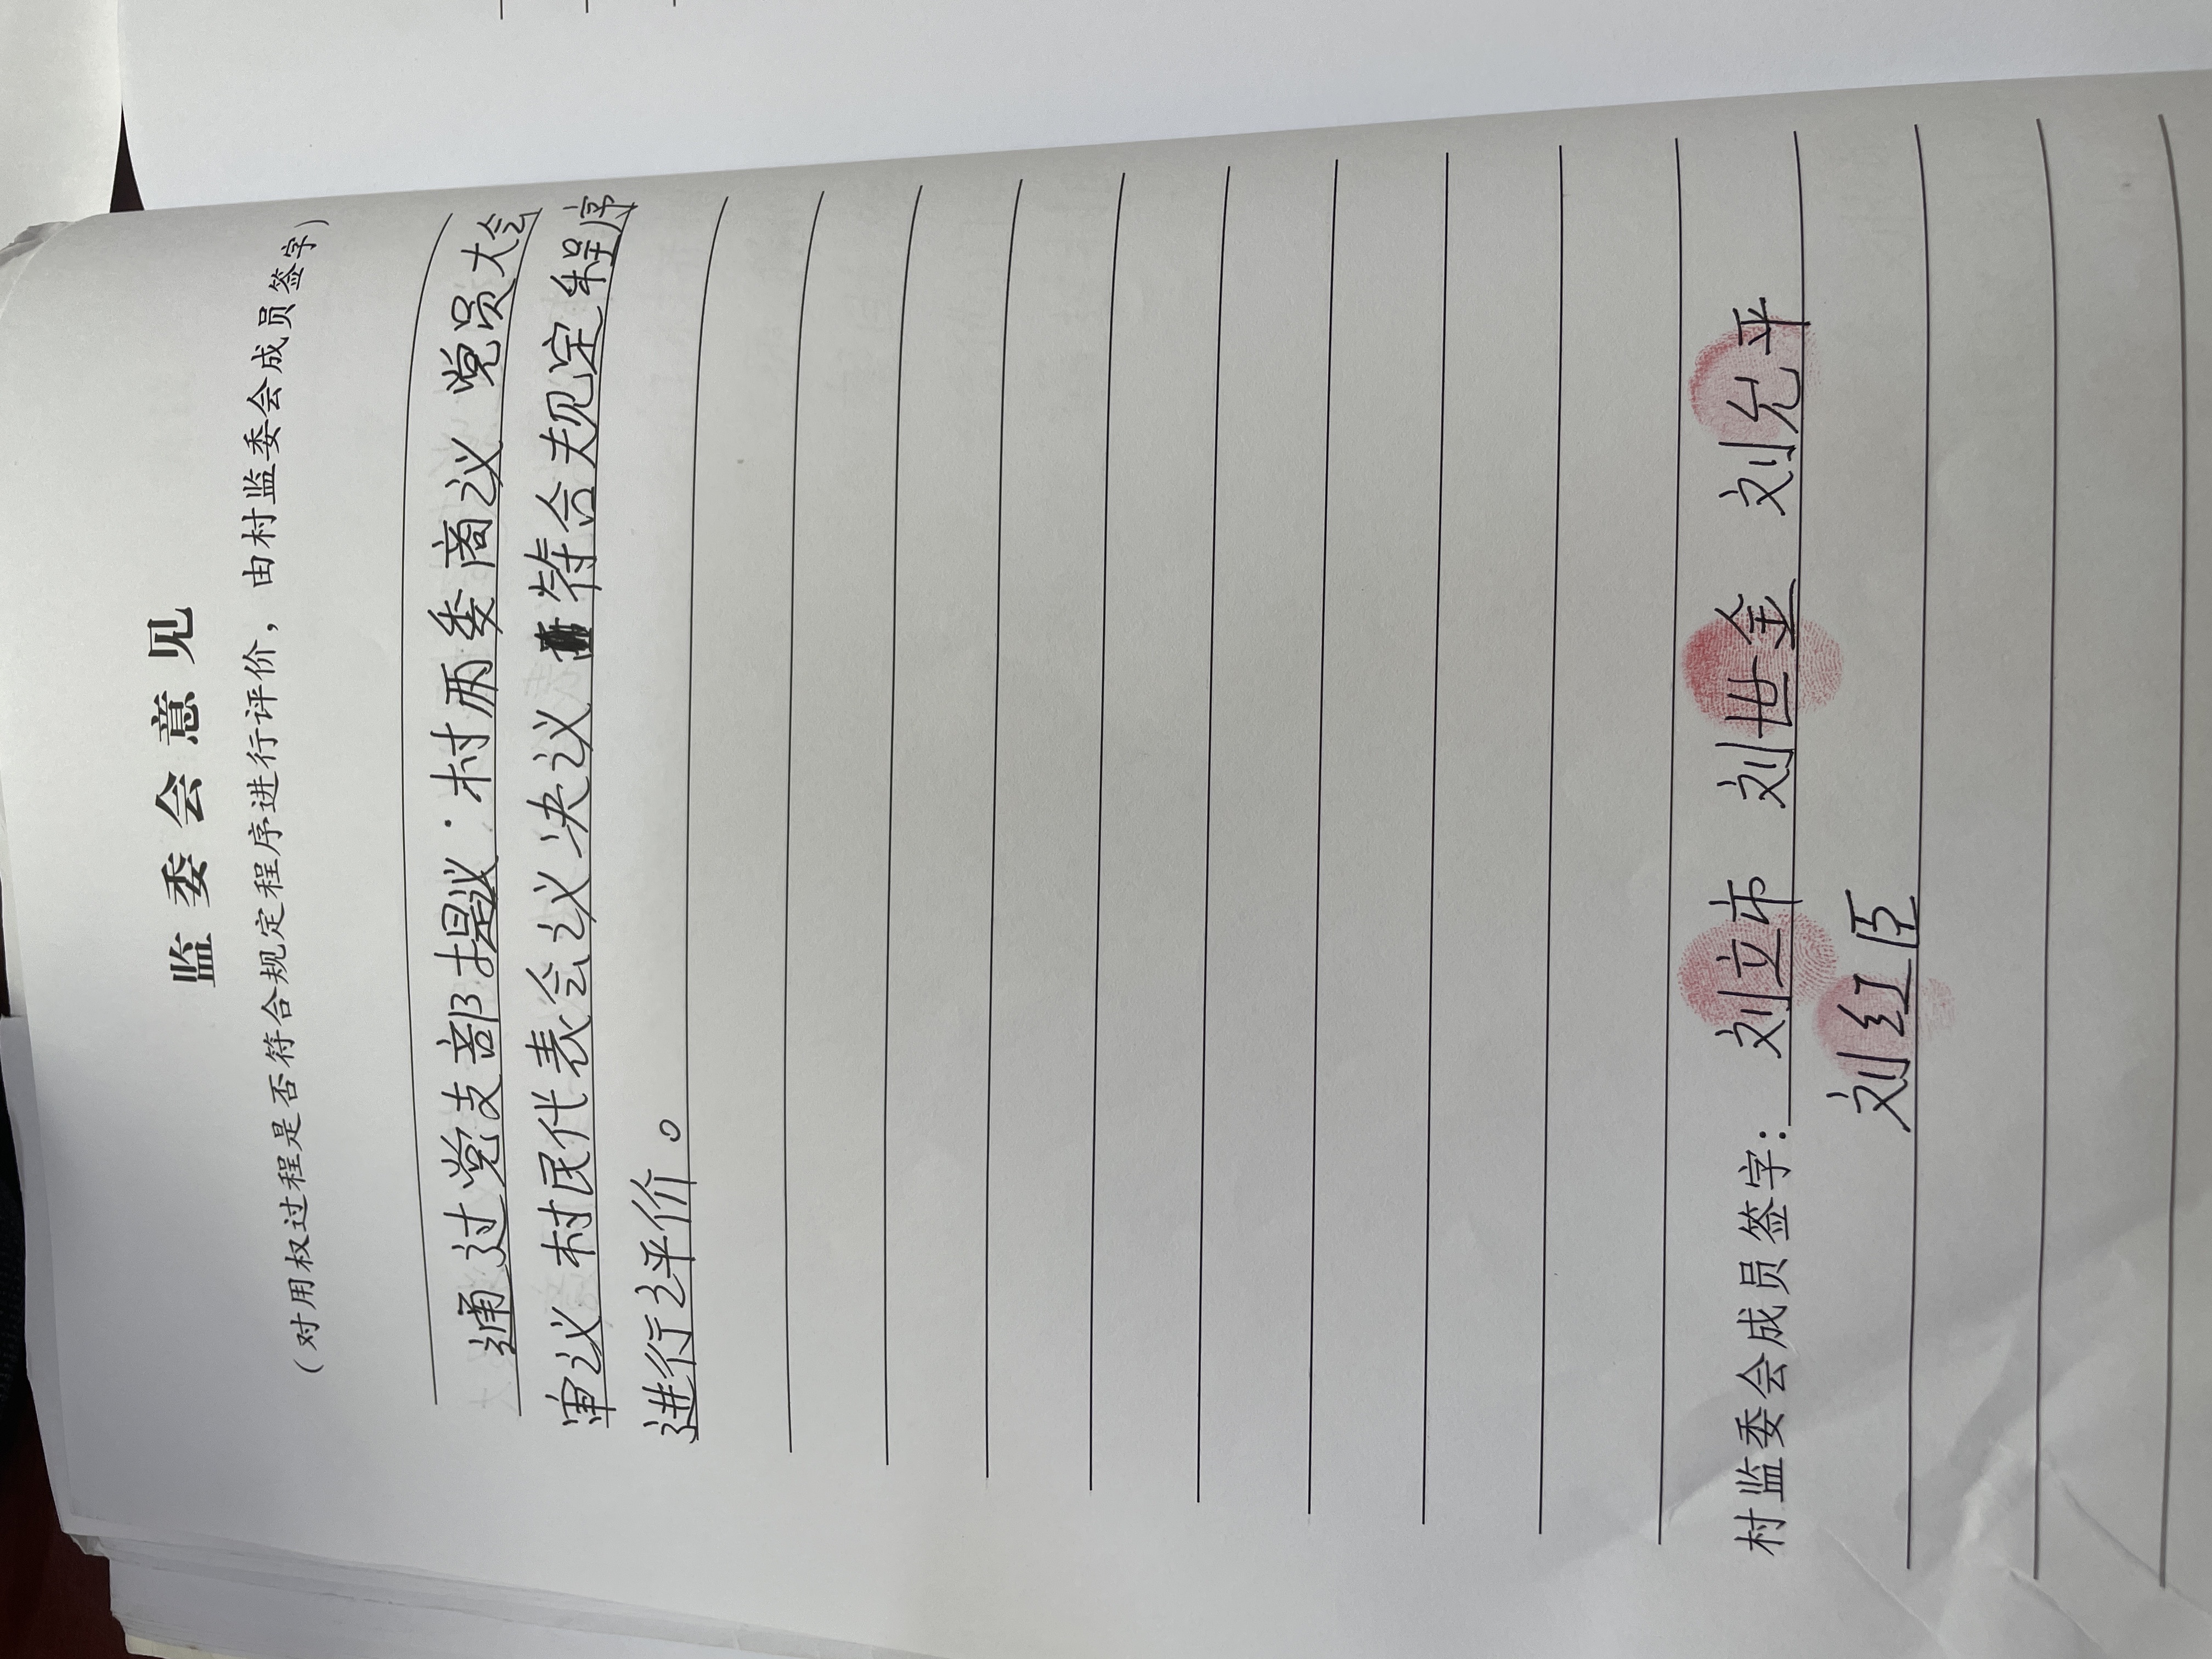 监委会意见
（对用权过程是否符合规定程序进行评价，由村监委会成员签字）
通过党支部提议·村两委商议 党员大会
审议 村民代表会议决议 符合规定程序
进行评价。
村监委会成员签字：刘立市 刘世金 刘允平
刘红臣